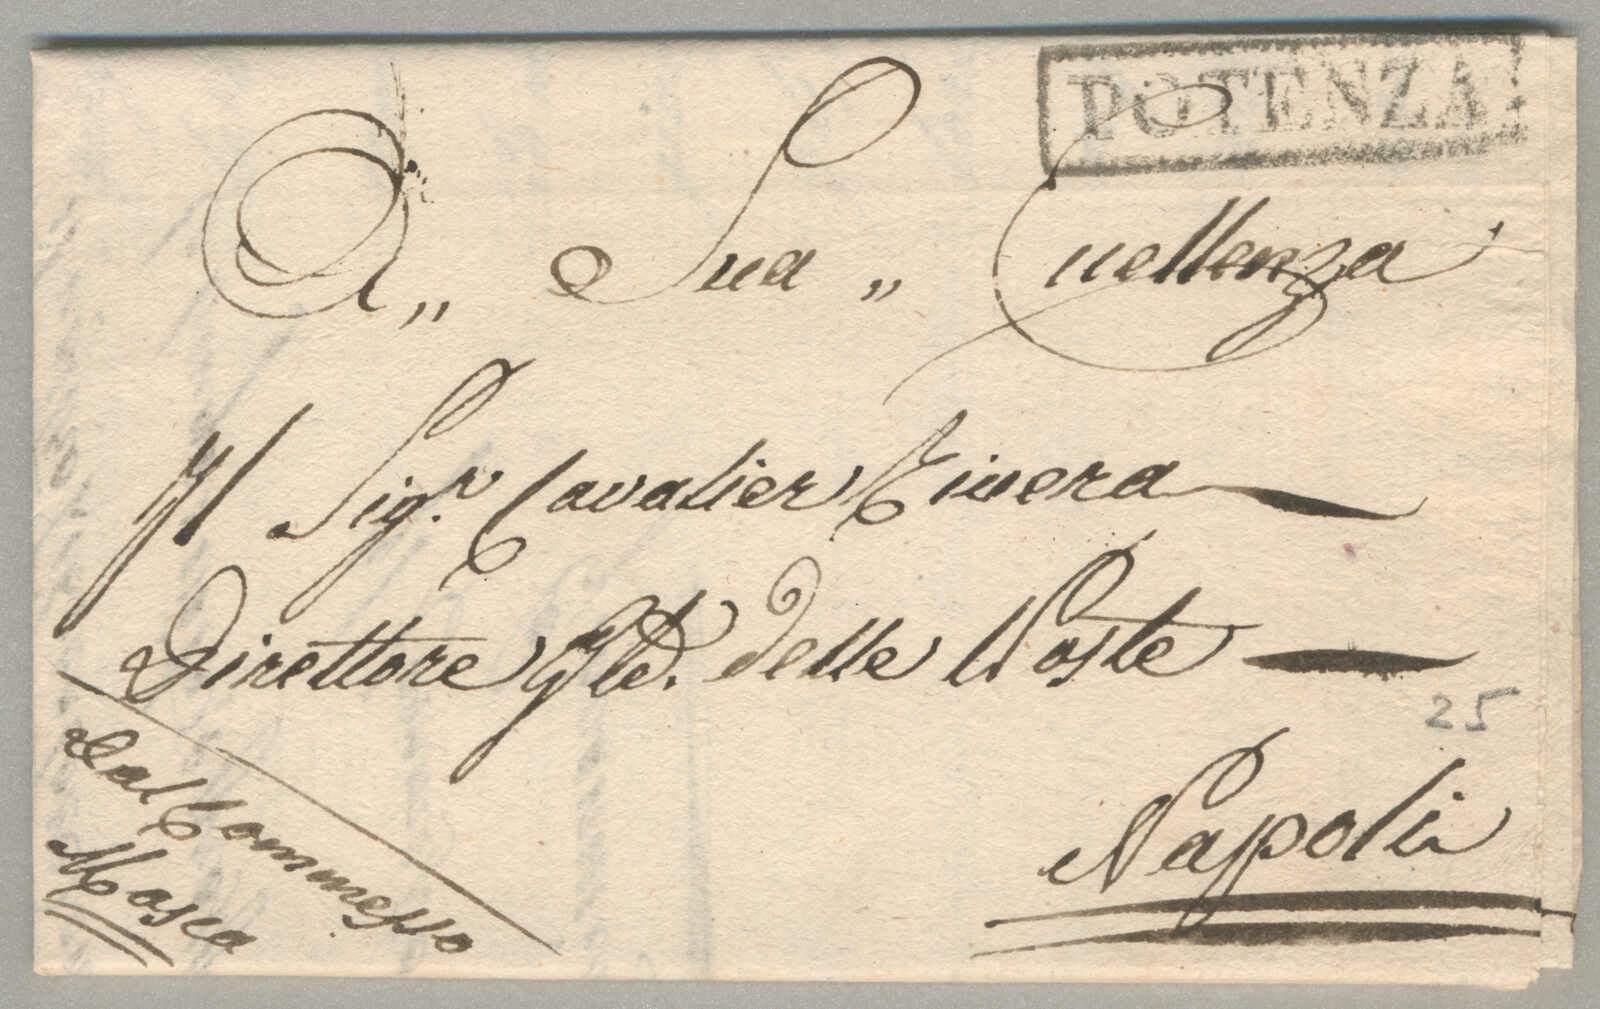 POTENZA
A,, Sua ,, Eccellenza
Il Sig.r Cavalier
Direttore Gle. delle Poste
25
Napoli
Dal Commesso
Mosca